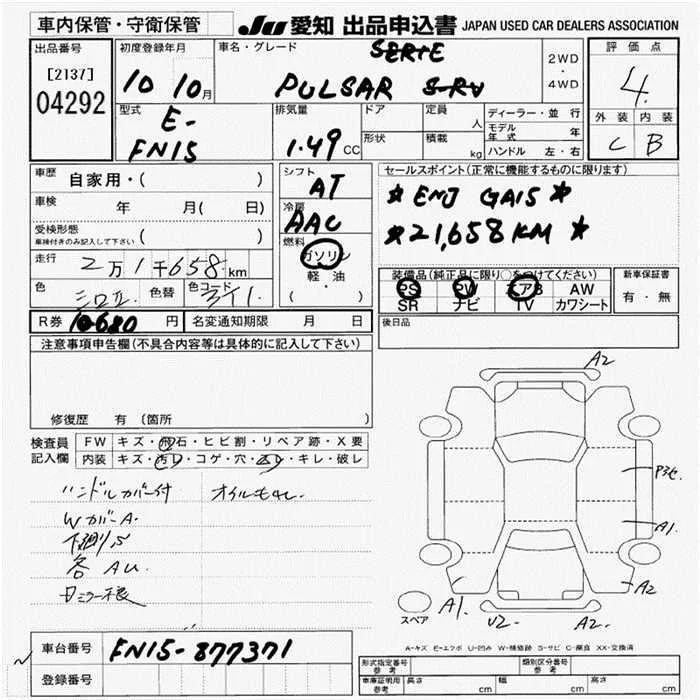 車内保管・守衛保管 JU 愛知 出品申込書 JAPAN USED CAR DEALERS ASSOCIATION
出品番号
[2137]
04292
初度登録年月
10 10月
車名・グレード
SERIE
PULSAR S-RV
2WD
・
4WD
評価点
4
外装 内装
C B
型式
E-
FN15
排気量
1.49 CC
ドア
形状
定員
人
積載
kg
ディーラー・並行
モデル年式 年
ハンドル 左・右
車歴 自家用・( )
車検 年 月( 日)
受検形態
車検付きのみ記入して下さい ( )
走行 2万1千658km
色 色替 色コード
シフト
AT
冷房
AAC
燃料
ガソリン
軽・油
( ・ )
セールスポイント(正常に機能するものに限ります)
★ ENJ GAIS ★
★ 21,658KM ★
装備品(純正品に限り○をつけてください)
PS PW エアB AW
SR ナビ TV カワシート
新車保証書
有・無
R券 10680 円 名変通知期限 月 日
後日品
注意事項申告欄(不具合内容等は具体的に記入して下さい)
修復歴 有 (箇所 )
検査員
記入欄
FW キズ・飛石・ヒビ割・リペア跡・X要
内装 キズ・汚レ・コゲ・穴・スレ・キレ・破レ
ハンドルカバー付 オイルモレ
Wカバー A.
下廻りS
各 AU.
A2
P3セ
A1
A2
A1.
U2-
A2.
スペア
A-キズ E-エクボ U-凹み W-補修跡 S-サビ C-腐食 XX-交換済
車台番号 FN15-877371
登録番号
形式指定番号
参考
類別区分番号
参考
車庫証明用
参考
長さ cm 幅 cm 高さ cm